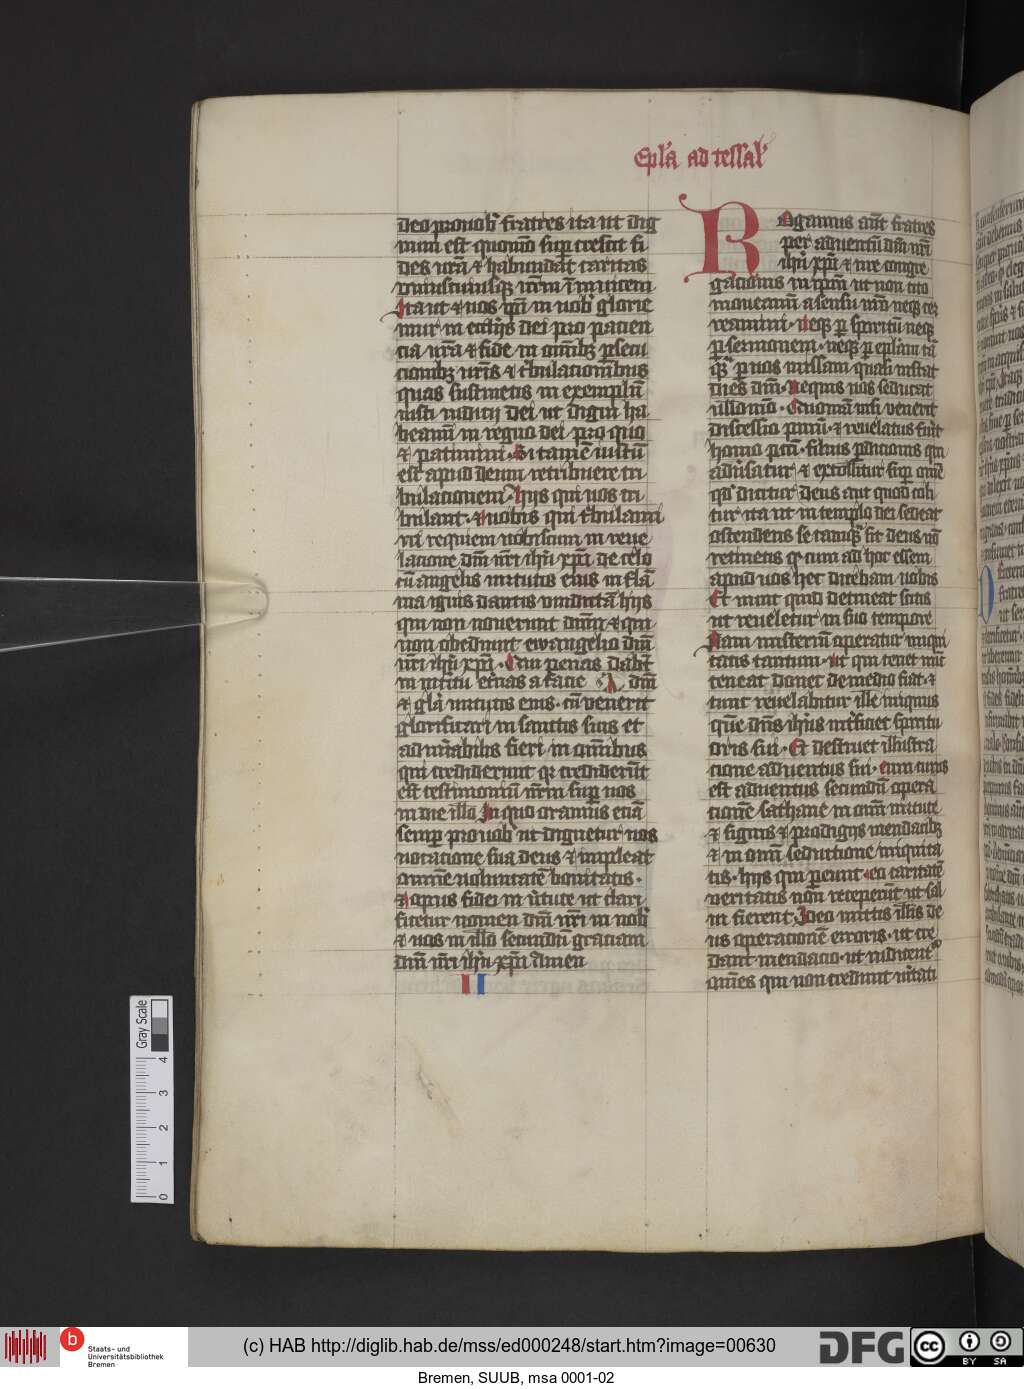 Epl'a ad tessal'
deo pro vob' fratres ita ut dig
num est quoniā sup̄ crescit fi
des vr̄a et habundat caritas
vniuscuiusq̄ vr̄m in inuicem
Ita ut et nos ip̄i in vob' glorie
mur in eccl'ijs dei pro pacien
cia vr̄a et fide in omībꝫ p̱secu
cionibꝫ vr̄is et t'bulacionibus
quas sustinetis in exemplū
iusti iudicij dei ut digni ha
beamī in regno dei pro quo
et patimini. Si tamē iustū
est apud deum retribuere tri
bulacionem hijs qui vos tri
bulant. et uobis qui t'bulami
ni requiem nobiscum in reue
lacione dn̄i nr̄i ih'u xp̄i de celo
cū angelis uirtutis eius in flā
ma ignis dantis vindictā hijs
qui non nouerunt deum et qui
non obediunt ewangelio dn̄i
nr̄i ih'u xp̄i. Qui penas dabūt
in int'itu et'nas a facie dn̄i
et gl'a uirtutis eius. cū venerit
glorificari in sanctis suis et
ad mirabilis fieri in omībus
qui crediderunt qꝛ crediderūt
est testimoniū nr̄m sup̄ vos
in die illo In quo oramus etiā
semp̱ pro vob' ut dignetur vos
vocacione sua deus et impleat
omnē voluntatē bonitatis.
et opus fidei in v'tute ut clari
ficetur nomen dn̄i nr̄i in vob'
et vos in illo secundū graciam
dn̄i nr̄i ih'u xp̄i Amen
II
Rogamus aūt fratres
per aduentū dn̄i nr̄i
ih'u xp̄i et nr̄e congre
gacionis in ip̄m ut non cito
moueamī a sensu vr̄o neqꝫ ter
reamini. neqꝫ p̱ spiritū neqꝫ
p̱ sermonem. neqꝫ p̱ epl'am tā
q̄ p̱ nos missam quasi instat
dies dn̄i. Nequis vos seducat
vllo mō. Quoniā nisi venerit
discessio primū. et reuelatus fuit
homo pctī. filius p̱dicionis qui
adu'satur et extollitur sup̱ omē
qd' dicitur deus aut quod coli
tur ita ut in templo dei sedeat
ostendens se tamq̄ sit deus nō
retinetis qꝫ cum ad hoc essem
apud vos hec dicebam uobis
Et nunc quid detineat scitis
ut reueletur in suo tempore
Nam misteriū operatur iniqui
tatis tantum. ut qui tenet nūc
teneat donec de medio fiat. et
tunc reuelabitur ille iniquus
quē dn̄s ih'us int'ficiet spiritu
oris sui. Et destruet illustra
cione aduentus sui. eum cuius
est aduentus secundū opera
cionē sathane in omī uirtute
et signis et prodigijs mendacibꝫ
et in omī seductione iniquita
tis. hijs qui p̱eunt. eo caritatē
veritatis non receperūt ut sal
ui fierent Ideo mittit illis de
us operacionē erroris. ut cre
dant mendacio. ut iudicent'
omēs qui non credunt u'itati
Gray Scale
4
3
2
1
0
b
Staats- und
Universitätsbibliothek
Bremen
(c) HAB http://diglib.hab.de/mss/ed000248/start.htm?image=00630
DFG
cc
BY SA
Bremen, SUUB, msa 0001-02